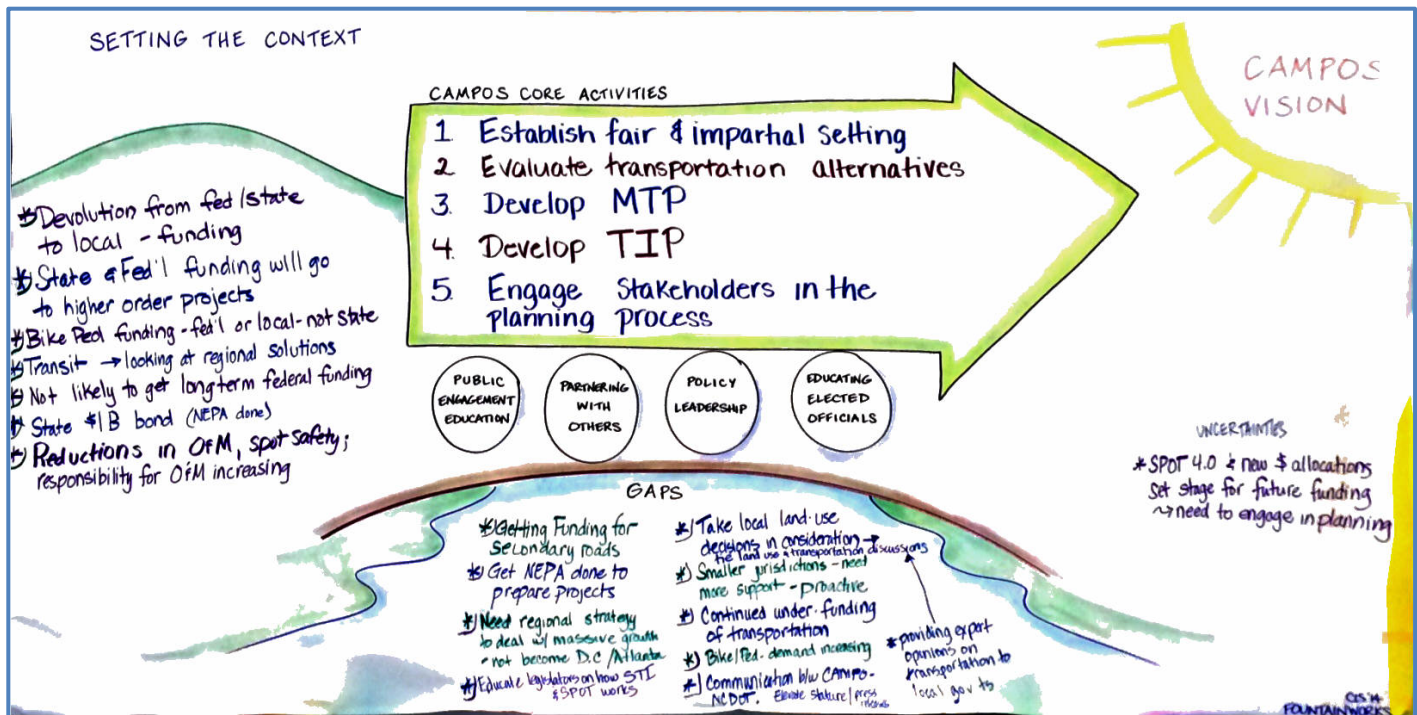 SETTING THE CONTEXT
CAMPOS VISION
CAMPOS CORE ACTIVITIES
1. Establish fair & impartial setting
2 Evaluate transportation alternatives
3. Develop MTP
4. Develop TIP
5. Engage Stakeholders in the
planning process
*) Devolution from fed/state
to local - funding
*) State & Fed'l funding will go
to higher order projects
*) Bike Ped funding - fed'l or local - not state
*) Transit → looking at regional solutions
*) Not likely to get longterm federal funding
*) State $1B bond (NEPA done)
*) Reductions in O&M, spot safety;
responsibility for O&M increasing
PUBLIC
ENGAGEMENT
EDUCATION
PARTNERING
WITH
OTHERS
POLICY
LEADERSHIP
EDUCATING
ELECTED
OFFICIALS
GAPS
*) Getting Funding for
secondary roads
*) Get NEPA done to
prepare projects
*) Need regional strategy
to deal w/ massive growth
- not become D.C/Atlanta
*) Educate legislators on how STI
& SPOT works
*) Take local land-use
decisions in consideration →
tie land use & transportation discussions
*) Smaller jurisdictions - need
more support - proactive
*) Continued under-funding
of transportation
*) Bike/Ped - demand increasing
*) Communication b/w CAMPO-
NCDOT. Elevate stature/press
releases
* providing expert
opinions on
transportation to
local gov'ts
UNCERTAINTIES
* SPOT 4.0 & new $ allocations
Set stage for future funding
→ need to engage in planning
CCS '14
FOUNTAINWORKS